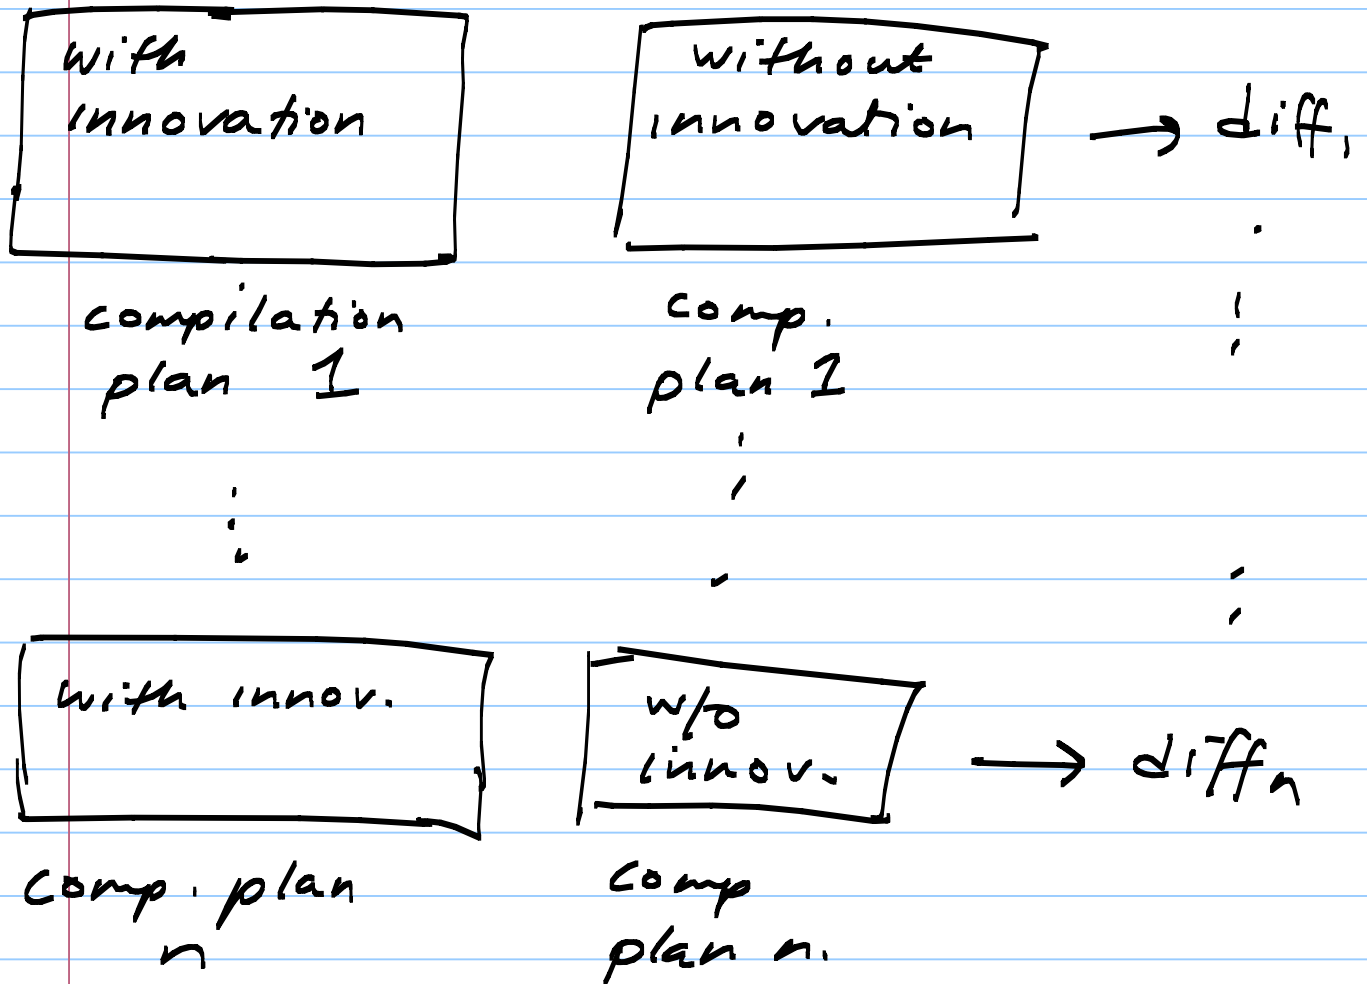 with
innovation
without
innovation
→ diff₁
compilation
plan 1
comp.
plan 1
with innov.
w/o
innov.
→ diffₙ
comp. plan
n
comp
plan n.